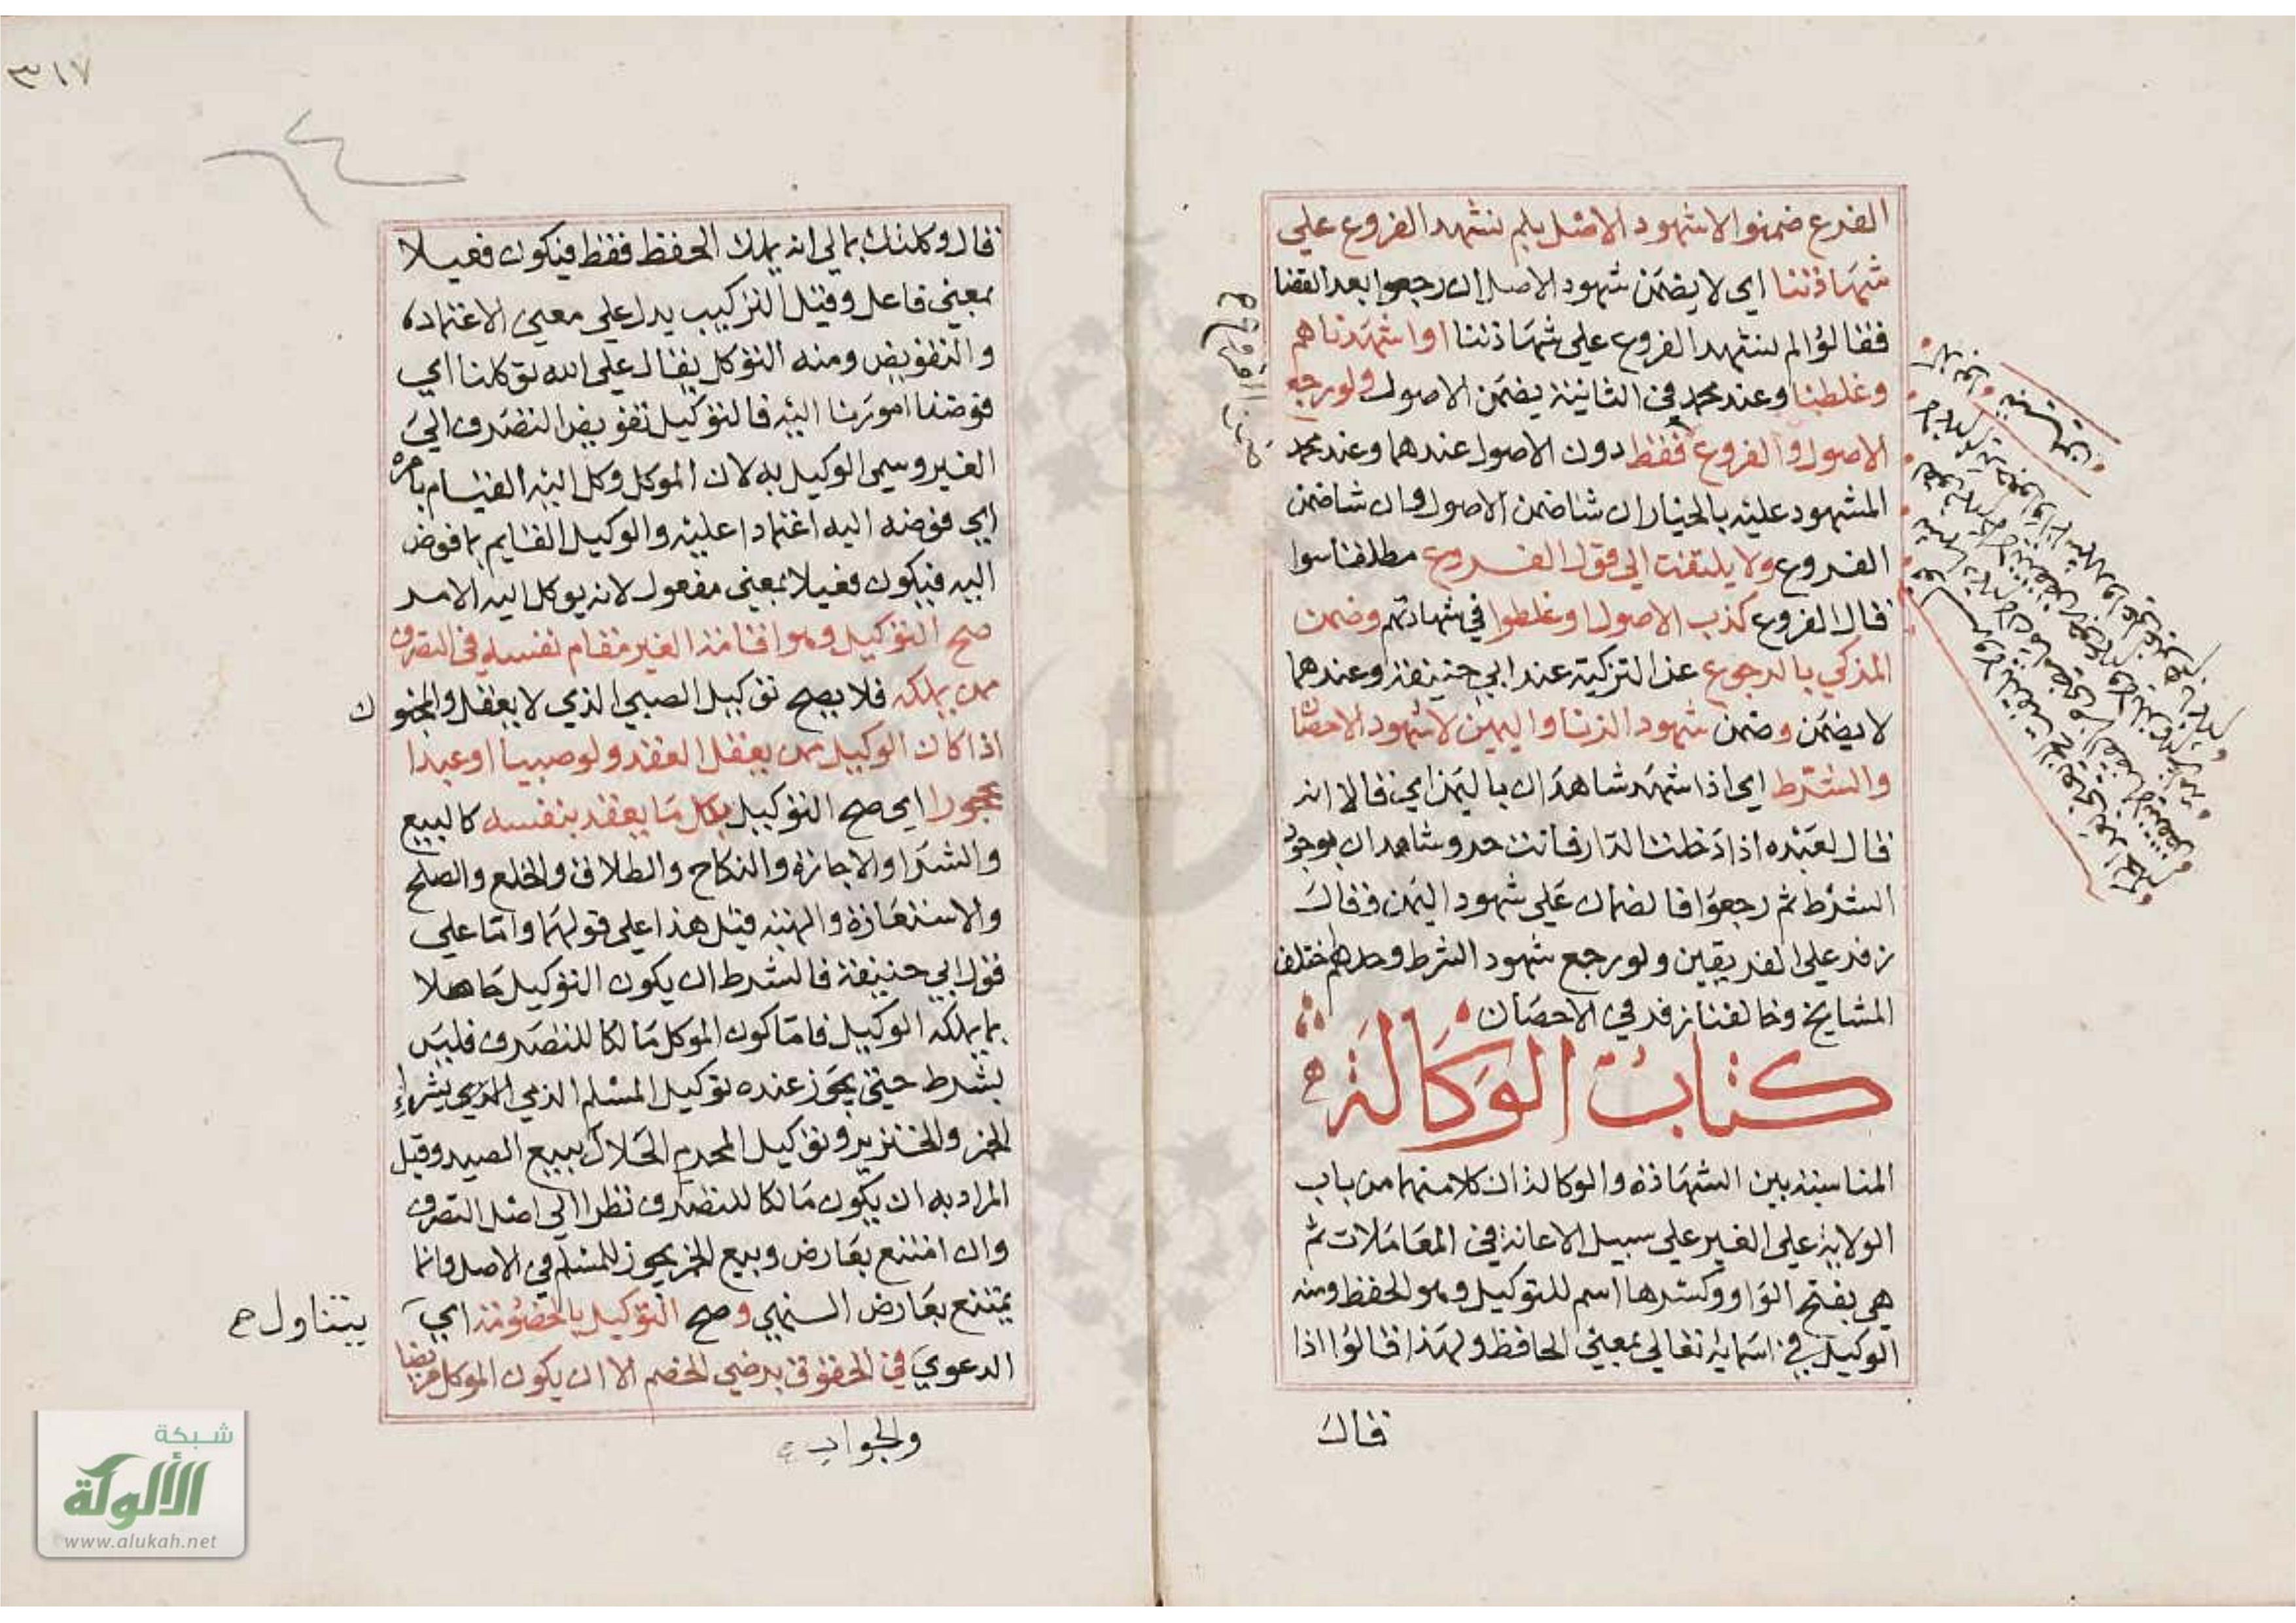 الفرع ضمنوا لا شهود الاصل بلم نشهد الفروع علي
شهادتنا اي لا يضمن شهود الاصل ان رجعوا بعد القضا
فقالوا لم نشهد الفروع علي شهادتنا او اشهدناهم
وغلطنا وعند محمد في الثانية يضمن الاصول ولو رجع
الاصول والفروع فقط دون الاصول عندهما وعند محمد
المشهود عليه بالخيار ان شا ضمن الاصول وان شا ضمن
الفروع ولا يلتفت الي قول الفروع مطلقا سوا
قال الفروع كذب الاصول او غلطوا في شهادتهم وضمن
المزكي بالرجوع عن التزكية عند ابي حنيفة وعندهما
لا يضمن وضمن شهود الزنا واليمين لا شهود الاحصان
والشرط اي اذا شهد شاهدان باليمين اي قالا انه
قال لعبده اذا دخلت الدار فانت حر وشاهدان بوجود
الشرط ثم رجعوا فالضمان علي شهود اليمين وقال
زفر علي الفريقين ولو رجع شهود الشرط وحدهم اختلف
المشايخ وخالفنا زفر في الاحصان
كتاب الوكالة
المناسبة بين الشهادة والوكالة ان كلا منهما من باب
الولاية علي الغير علي سبيل الاعانة في المعاملات ثم
هي بفتح الواو وكسرها اسم للتوكيل وهو الحفظ ومنه
الوكيل في اسمايه تعالي بمعني الحافظ ولهذا قالوا اذا
قال
٣١٧
قال وكلتك بمالي انه يملك الحفظ فقط فيكون فعيلا
بمعني فاعل وقيل التركيب يدل علي معني الاعتماد
والتفويض ومنه التوكل يقال علي الله توكلنا اي
فوضنا امورنا اليه فالتوكيل تفويض التصرف الي
الغير وسمي الوكيل به لان الموكل وكل اليه القيام بامره
اي فوضه اليه اعتمادا عليه والوكيل القايم بما فوض
اليه فيكون فعيلا بمعني مفعول لانه يوكل اليه الامر
صح التوكيل وهو اقامة الغير مقام نفسه في التصرف
ممن يملكه فلا يصح توكيل الصبي الذي لا يعقل والمجنون
اذا كان الوكيل ممن يعقل العقد ولو صبيا او عبدا
محجورا اي صح التوكيل بكل ما يعقد بنفسه كالبيع
والشرا والاجازة والنكاح والطلاق والخلع والصلح
والاستعارة والهبة قيل هذا علي قولهما واما علي
قول ابي حنيفة فالشرط ان يكون التوكيل حاصلا
بما يملكه الوكيل فاما كون الموكل مالكا للتصرف فليس
بشرط حتي يجوز عنده توكيل المسلم الذمي بشراء
الخمر والخنزير وتوكيل المحرم الحلال ببيع الصيد وقيل
المراد به ان يكون مالكا للتصرف نظرا الي اصل التصرف
وان امتنع بعارض وبيع الخمر يجوز للمسلم في الاصل وانما
يمتنع بعارض النهي وصح التوكيل بالخصومة اي
يتناول ح
الدعوي في الحقوق برضي الخصم الا ان يكون الموكل مريضا
والجواب
شبكة
الألوكة
www.alukah.net